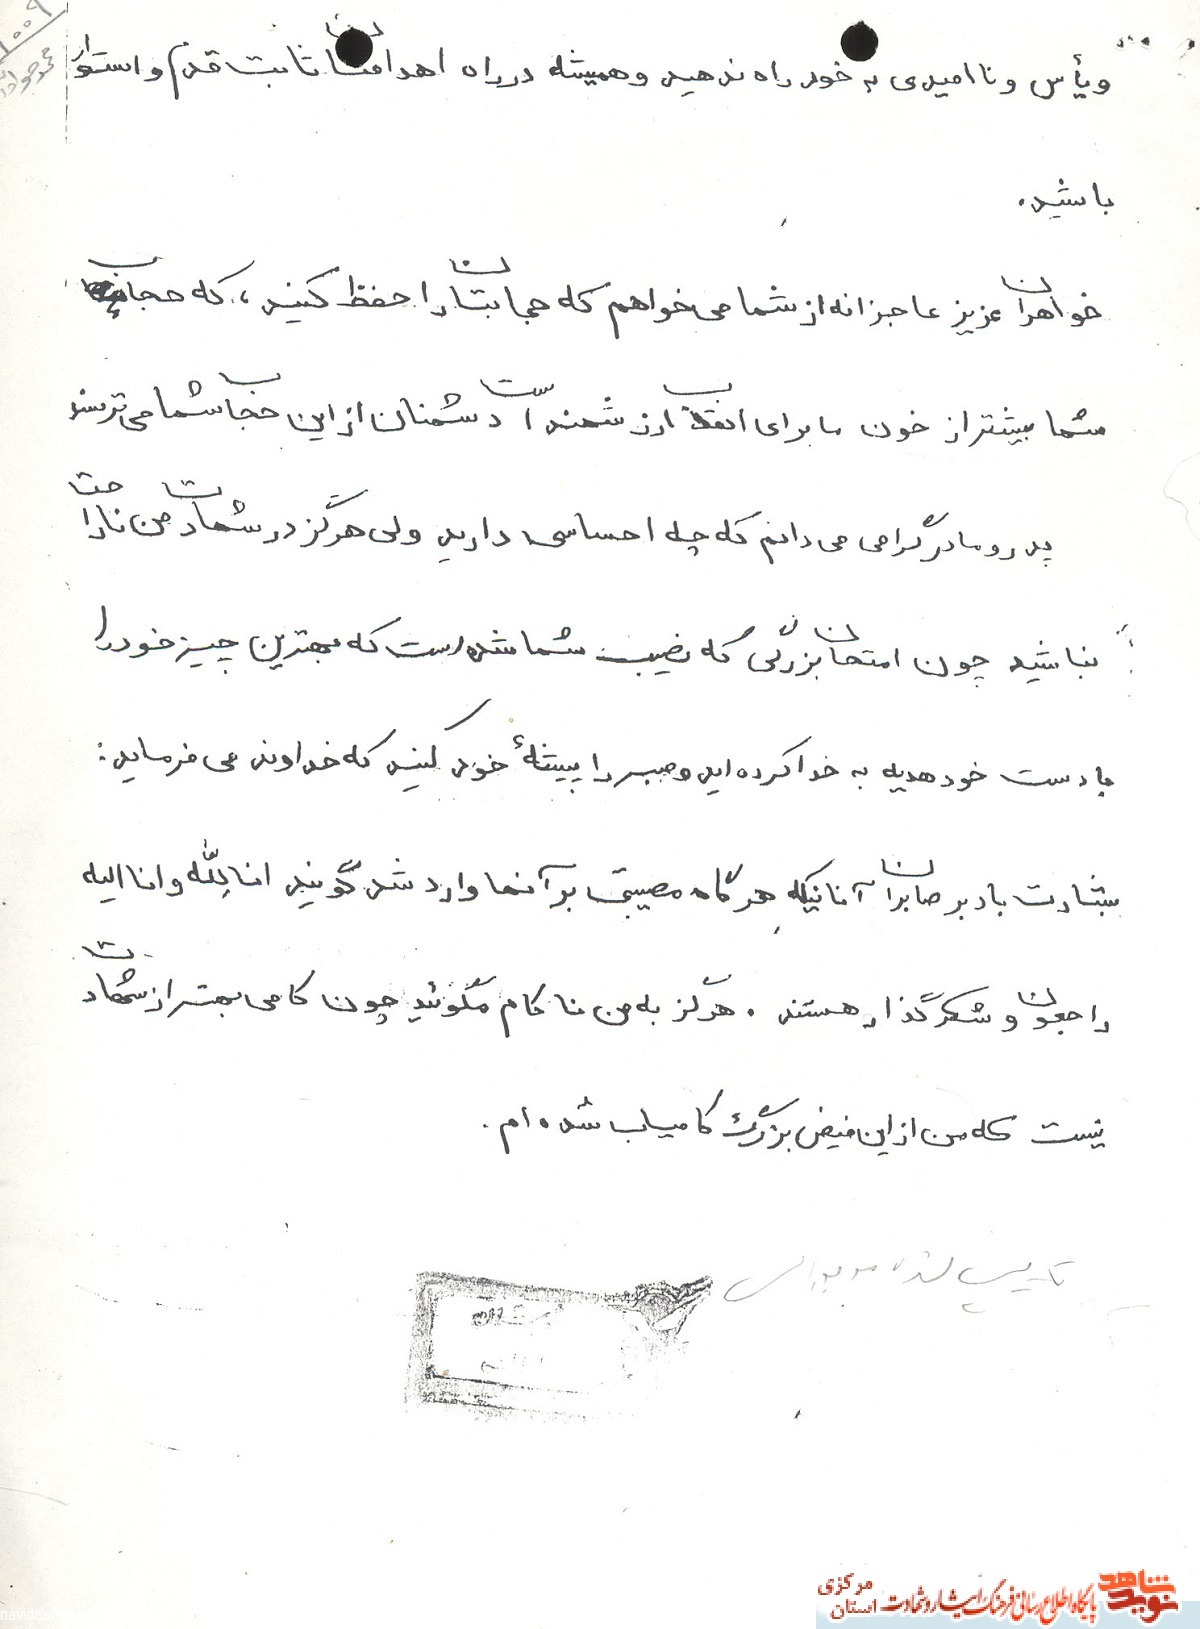 ویأس و ناامیدی به خود راه ندهید و همیشه در راه اهدافتان ثابت قدم و استوار
باشید.
خواهران عزیز عاجزانه از شما می‌خواهم که حجابتان را حفظ کنید، که حجاب
شما بیشتر از خون ما برای انقلاب ارزشمند است دشمنان از این حجاب شما می‌ترسند
پدر و مادر گرامی می‌دانم که چه احساسی دارید ولی هرگز در شهادت من ناراحت
نباشید چون امتحان بزرگی که نصیب شما شده است که بهترین چیز خود را
با دست خود هدیه به خدا کرده‌اید و صبر را پیشهٔ خود کنید که خداوند می‌فرماید:
بشارت باد بر صابران آنانیکه هرگاه مصیبتی بر آنها وارد شد گویند انا لله و انا الیه
راجعون و شکرگذار هستند. هرگز به من ناکام مگوئید چون کامی بهتر از شهادت
نیست که من از این فیض بزرگ کامیاب شده‌ام.
نوید شاهد
پایگاه اطلاع رسانی فرهنگ ایثار و شهادت
استان مرکزی